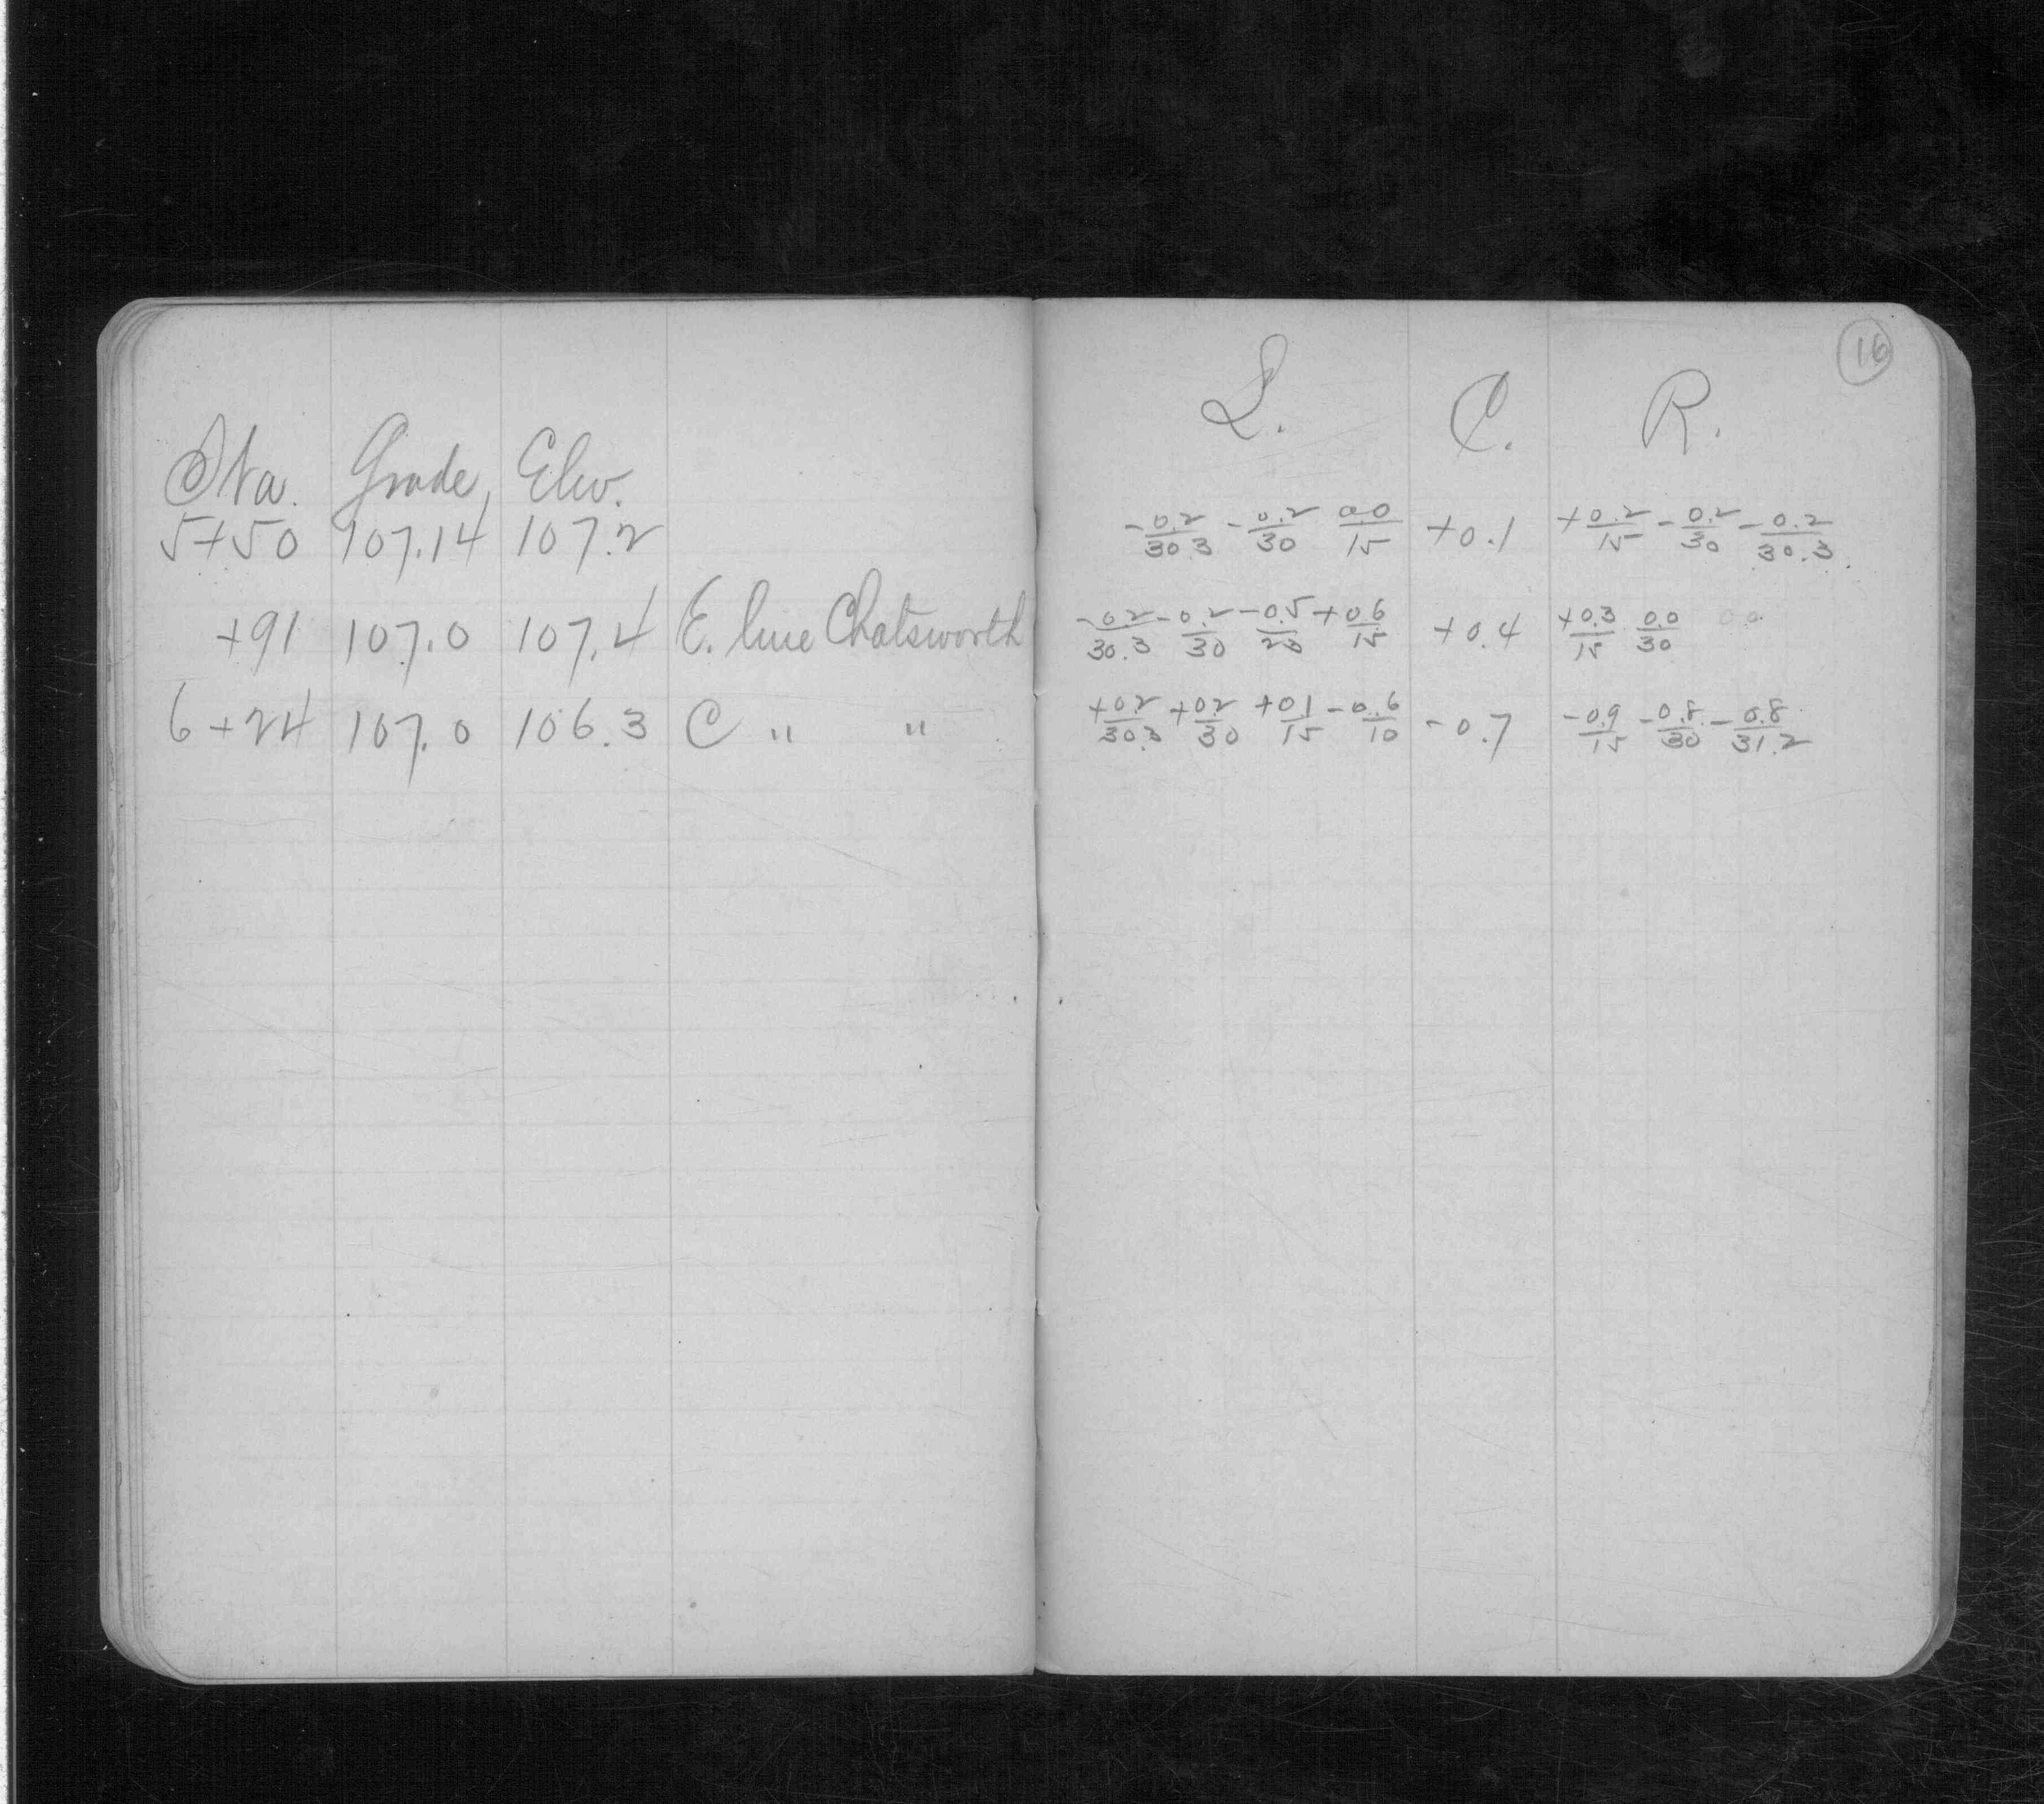 16
L. C. R.
Sta. Grade Elev.
5+50 107.14 107.2 -0.2/30.3 -0.2/30 0.0/15 +0.1 +0.2/15 -0.2/30 -0.2/30.3
+91 107.0 107.4 E. line Chatsworth -0.2/30.3 -0.2/30 -0.5/20 +0.6/15 +0.4 +0.3/15 0.0/30 0.0
6+24 107.0 106.3 C " " +0.2/30.3 +0.2/30 +0.1/15 -0.6/10 -0.7 -0.9/15 -0.8/30 -0.8/31.2